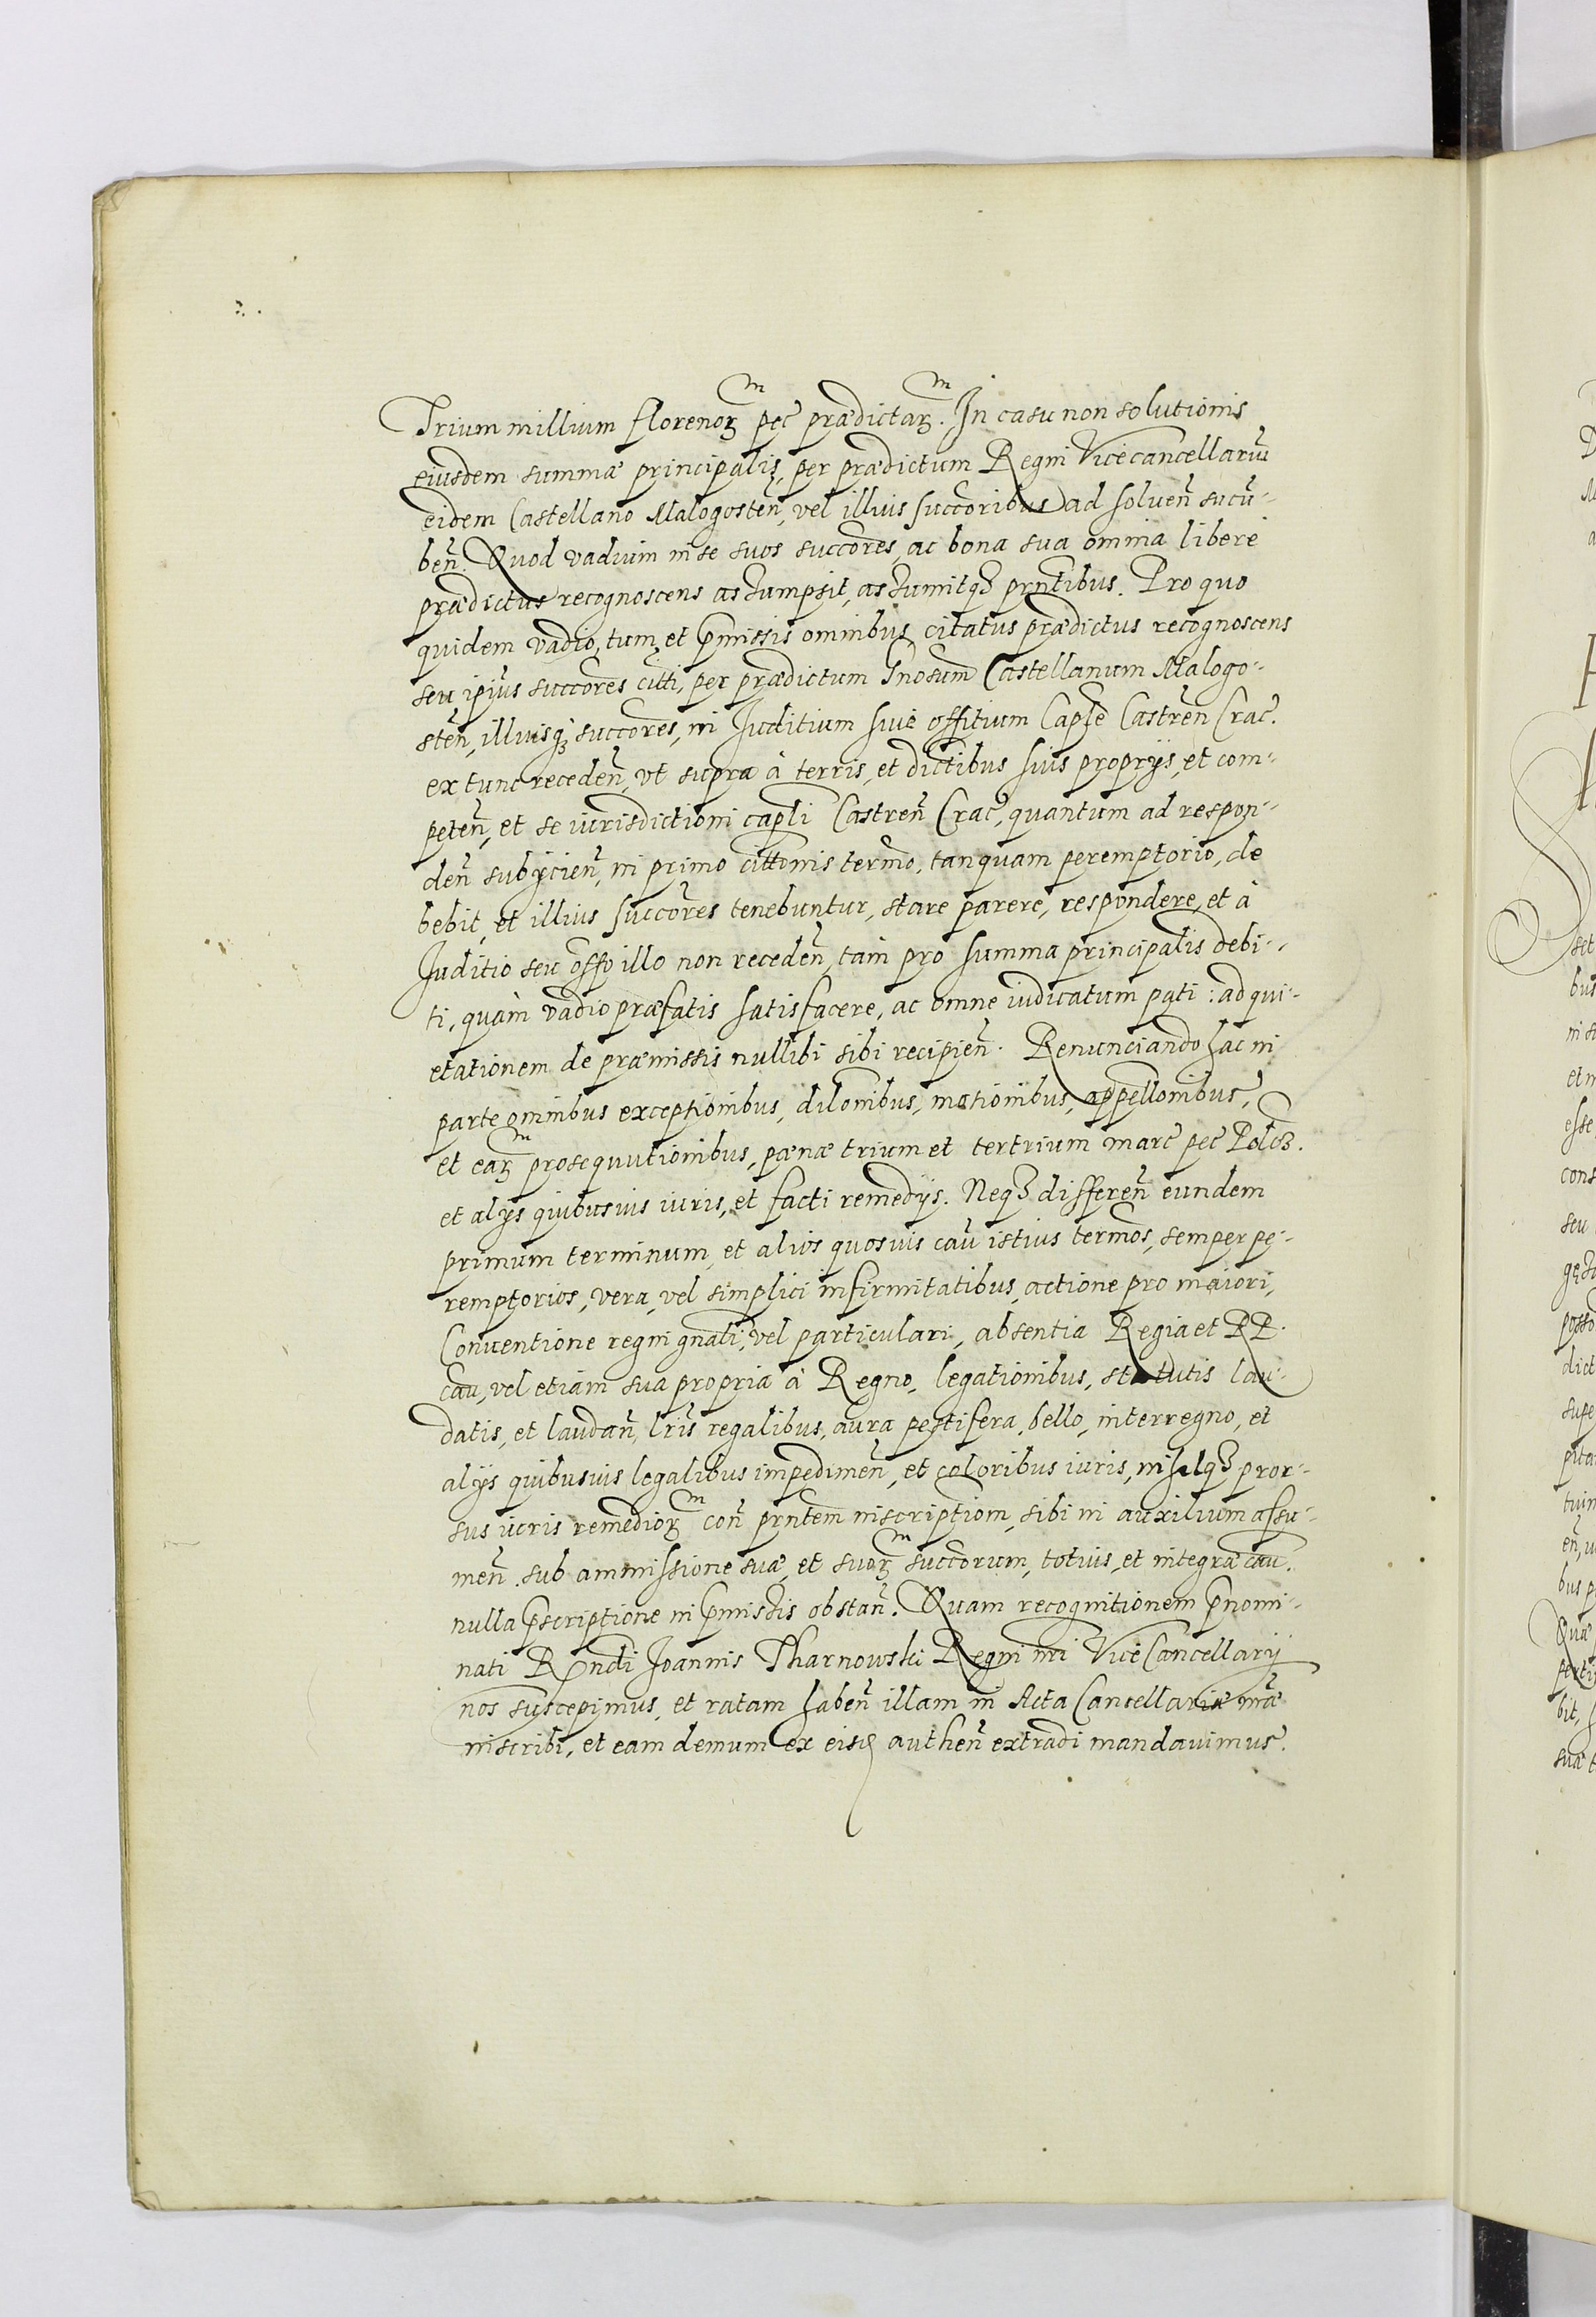 Trium millium florenoꝝ pec̄ prædictaꝝ. In casu non solutionis
eiusdem summæ principalis, per prædictum Regni Vicecancellariū
eidem Castellano Malogosteñ, vel illius succōribus ad solveñ sucū-
beñ. Quod vadium in se suos succōres, ac bona sua omnia libere
prædictus recognoscens assumpsit, assumitqȝ prn̄tibus. Pro quo
quidem vadio, tum et p̄missis omnibus citatus prædictus recognoscens
seu ipsius succōres citti, per prædictum Gn̄osum Castellanum Malogo-
steñ, illiusqȝ succōres, in Iuditium sive offitium Caple Castreñ Crac̄.
ex tunc recedeñ, vt supra à terris, et dictibus suis proprijs, et com-
peteñ, et se iurisdictioni capli Castreñ Crac̄, quantum ad respon-
deñ subijcieñ, in primo cittōnis termō, tanquam peremptorio, de
bebit, et illius succōres tenebuntur, stare parere, respondere, et à
Iuditio seu offō illo non recedeñ, tam pro summa principalis debi-
ti, quàm vadio præfatis satisfacere, ac omne iudicatum pati: ad qui-
etationem de præmissis nullibi sibi recipieñ. Renunciando hac in
parte omnibus exceptionibus, dilōnibus, motionibus, appellōnibus,
et eaꝝ prosequutionibus, pœnæ trium et tertrium marc̄ pec̄ Polcȝ.
et alijs quibusuis iuris, et facti remedijs. Neqȝ differeñ eundem
primum terminum, et alios quosuis cau̅ istius termōs, semper pe-
remptorios, vera, vel simplici infirmitatibus, actione pro maiori,
Conuentione regni gn̄ali, vel particulari, absentia Regia et RP.
cau̅, vel etiam sua propria à Regno, legationibus, statutis lau-
datis, et laudañ, lrīs regalibus, aura pestifera, bello, interregno, et
alijs quibusuis legalibus impedimeñ, et coloribus iuris, nihilqȝ pror-
sus iuris remedioꝝ coñ prn̄tem inscriptiom, sibi in auxilium assu-
meñ. sub ammissione suæ, et suoꝝ succōrum, totius, et integræ cau̅.
nulla p̄scriptione in p̄missis obstañ. Quam recognitionem p̄nomi-
nati Rn̄di Joannis Tharnowski Regni nr̄i ViceCancellarij
nos suscepimus, et ratam habeñ illam in Acta Cancellariæ nr̄æ
inscribi, et eam demum ex eisd autheñ extradi mandauimus.